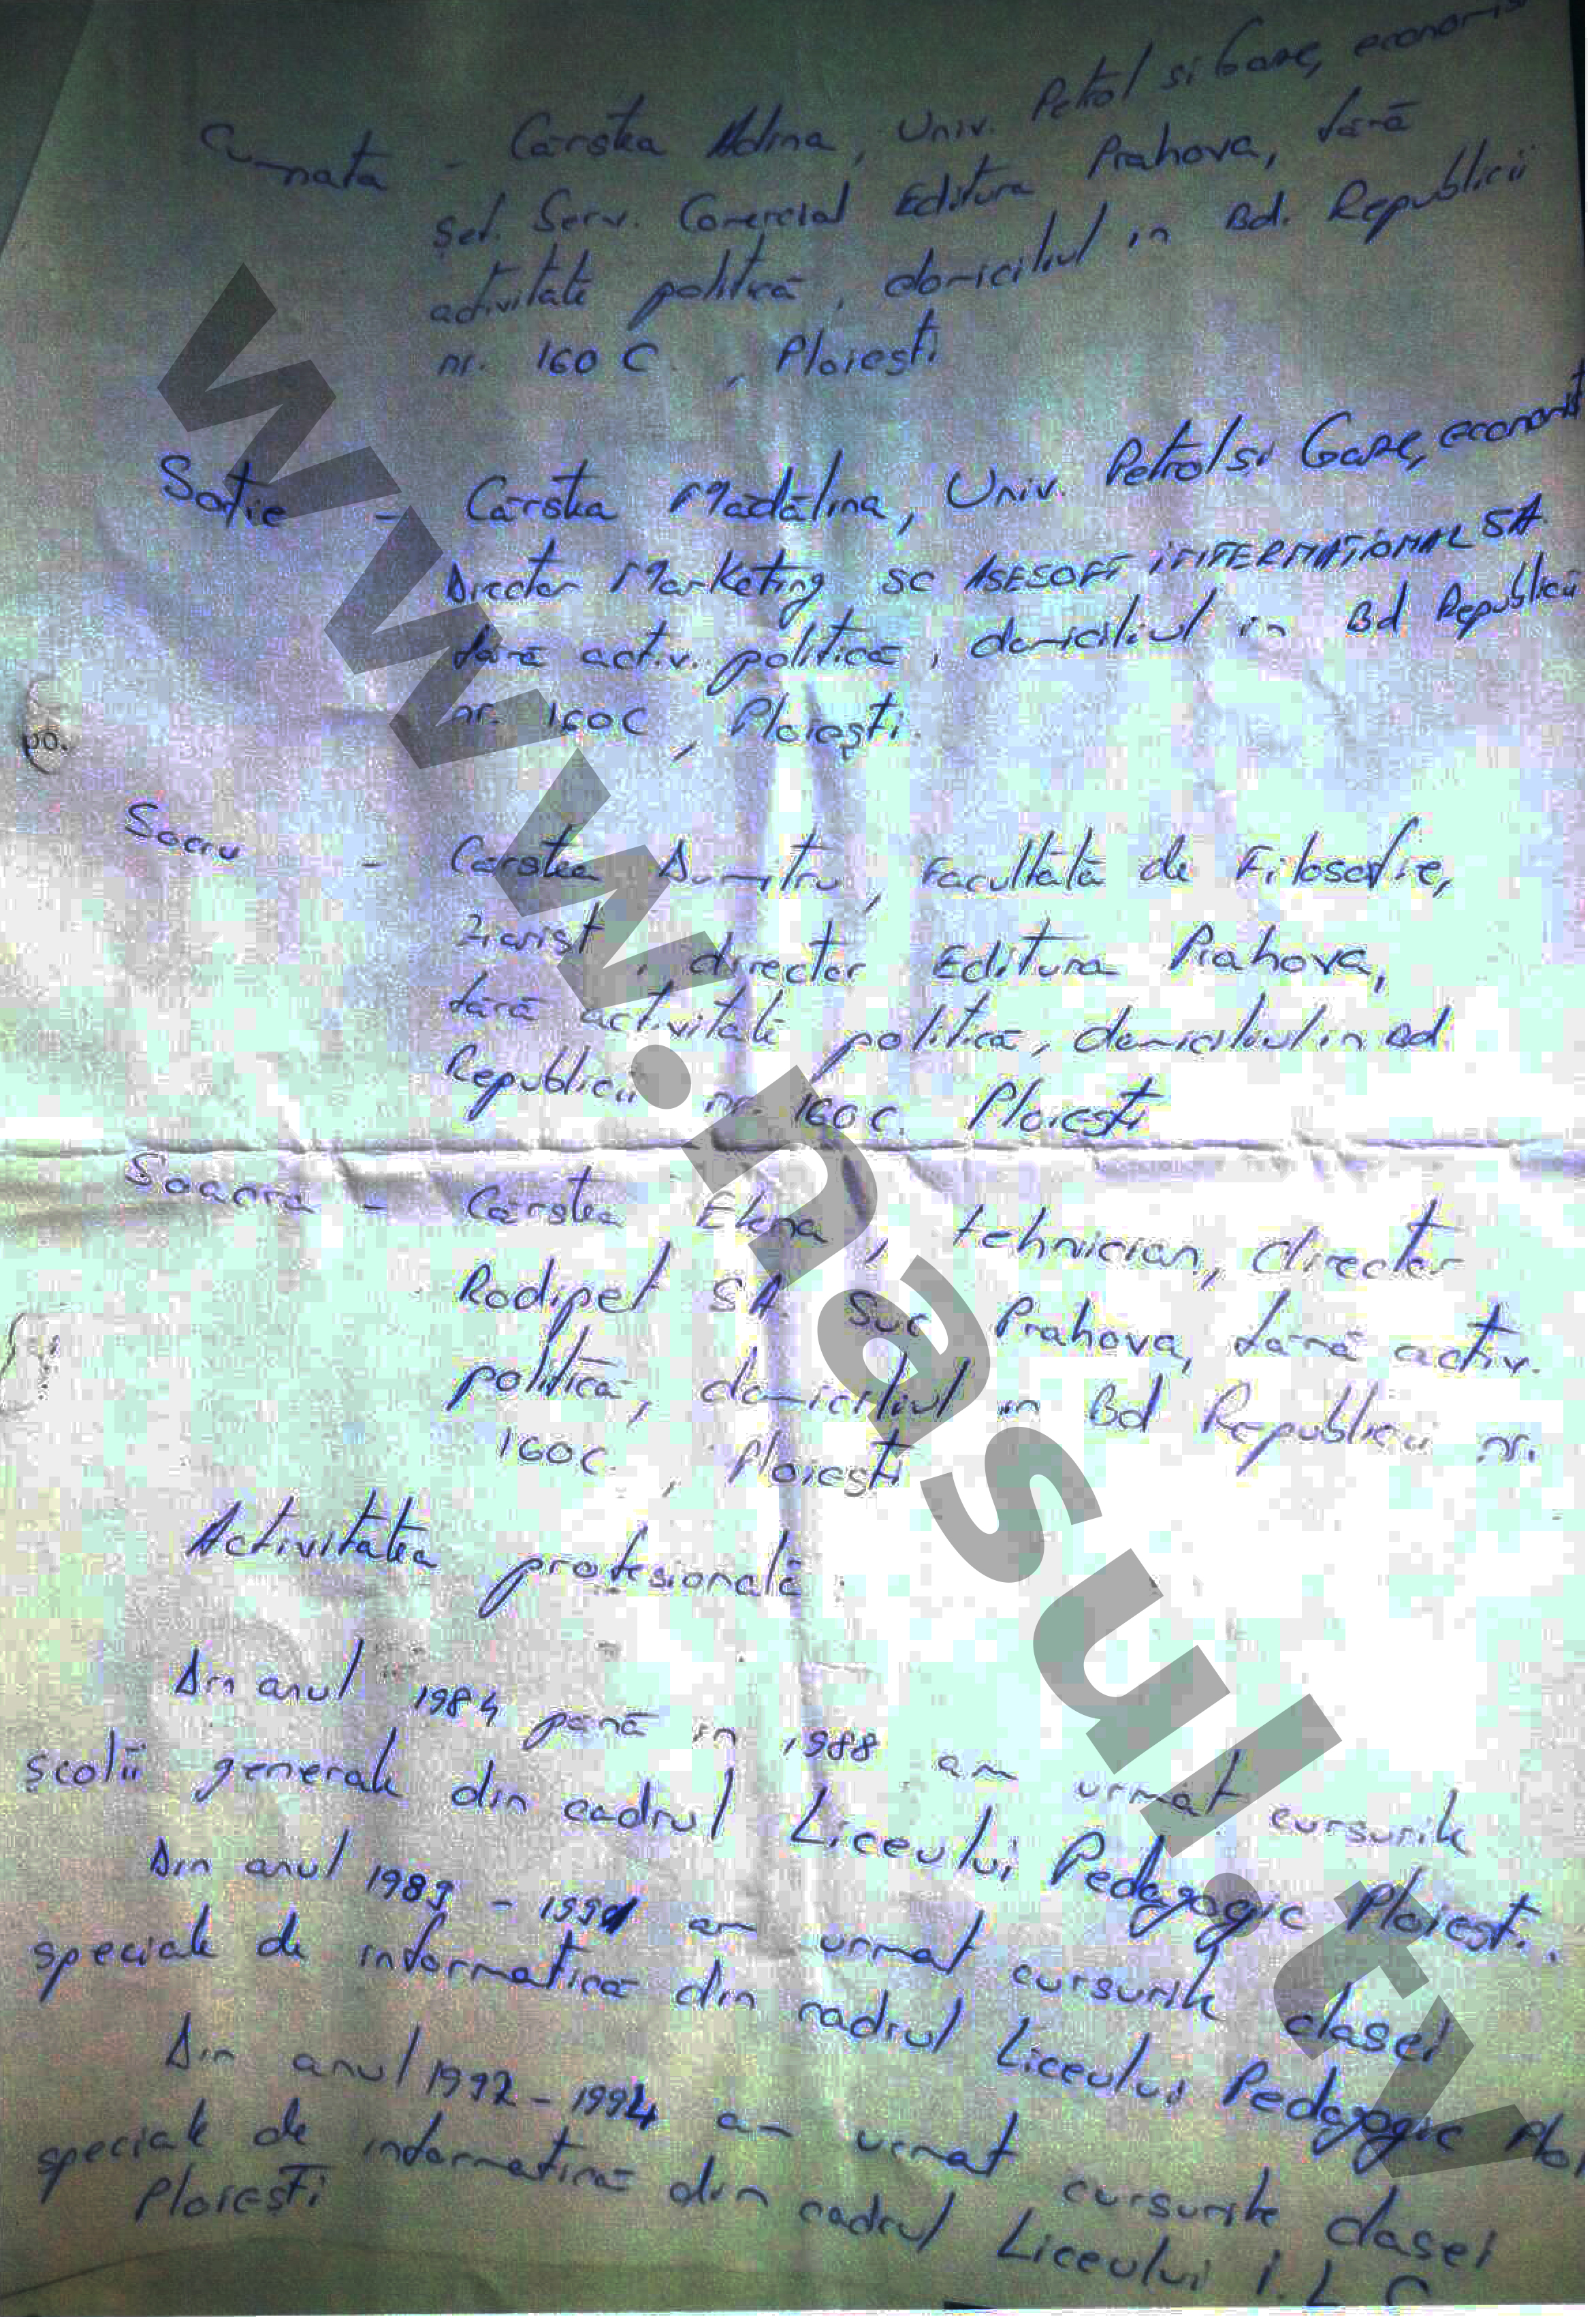 Cumnata - Cârstea Adina, Univ. Petrol si Gaze, economis
Şef. Serv. Comercial Editura Prahova, fără
activitate politică, domiciliul in Bd. Republicii
nr. 160 C , Ploiesti
Soţie - Cârstea Mădălina, Univ. Petrol si Gaze, economist
Director Marketing SC ASESOFT INTERNAŢIONAL SA
fără activ. politică, domiciliul in Bd Republicii
nr. 160C , Ploieşti.
po.
Socru - Cârstea Dumitru, Facultatea de Filosofie,
Ziarist, director Editura Prahova,
fără activitate politică, domiciliul in Bd.
Republicii nr. 160 C. Ploiesti
Soacra - Cârstea Elena, tehnician, director
Rodipet SA Suc Prahova, fără activ.
politică, domiciliul in Bd Republicii nr.
160C. , Ploieşti
Activitatea profesională
Din anul 1984 pană in 1988 am urmat cursurile
şcolii generale din cadrul Liceului Pedagogic Ploiesti.
Din anul 1989 - 1991 am urmat cursurile clasei
speciale de informatică din cadrul Liceului Pedagogic Ploi
Din anul 1992 - 1994 am urmat cursurile clasei
speciale de informatică din cadrul Liceului I. L C
Ploieşti
www.nasul.tv